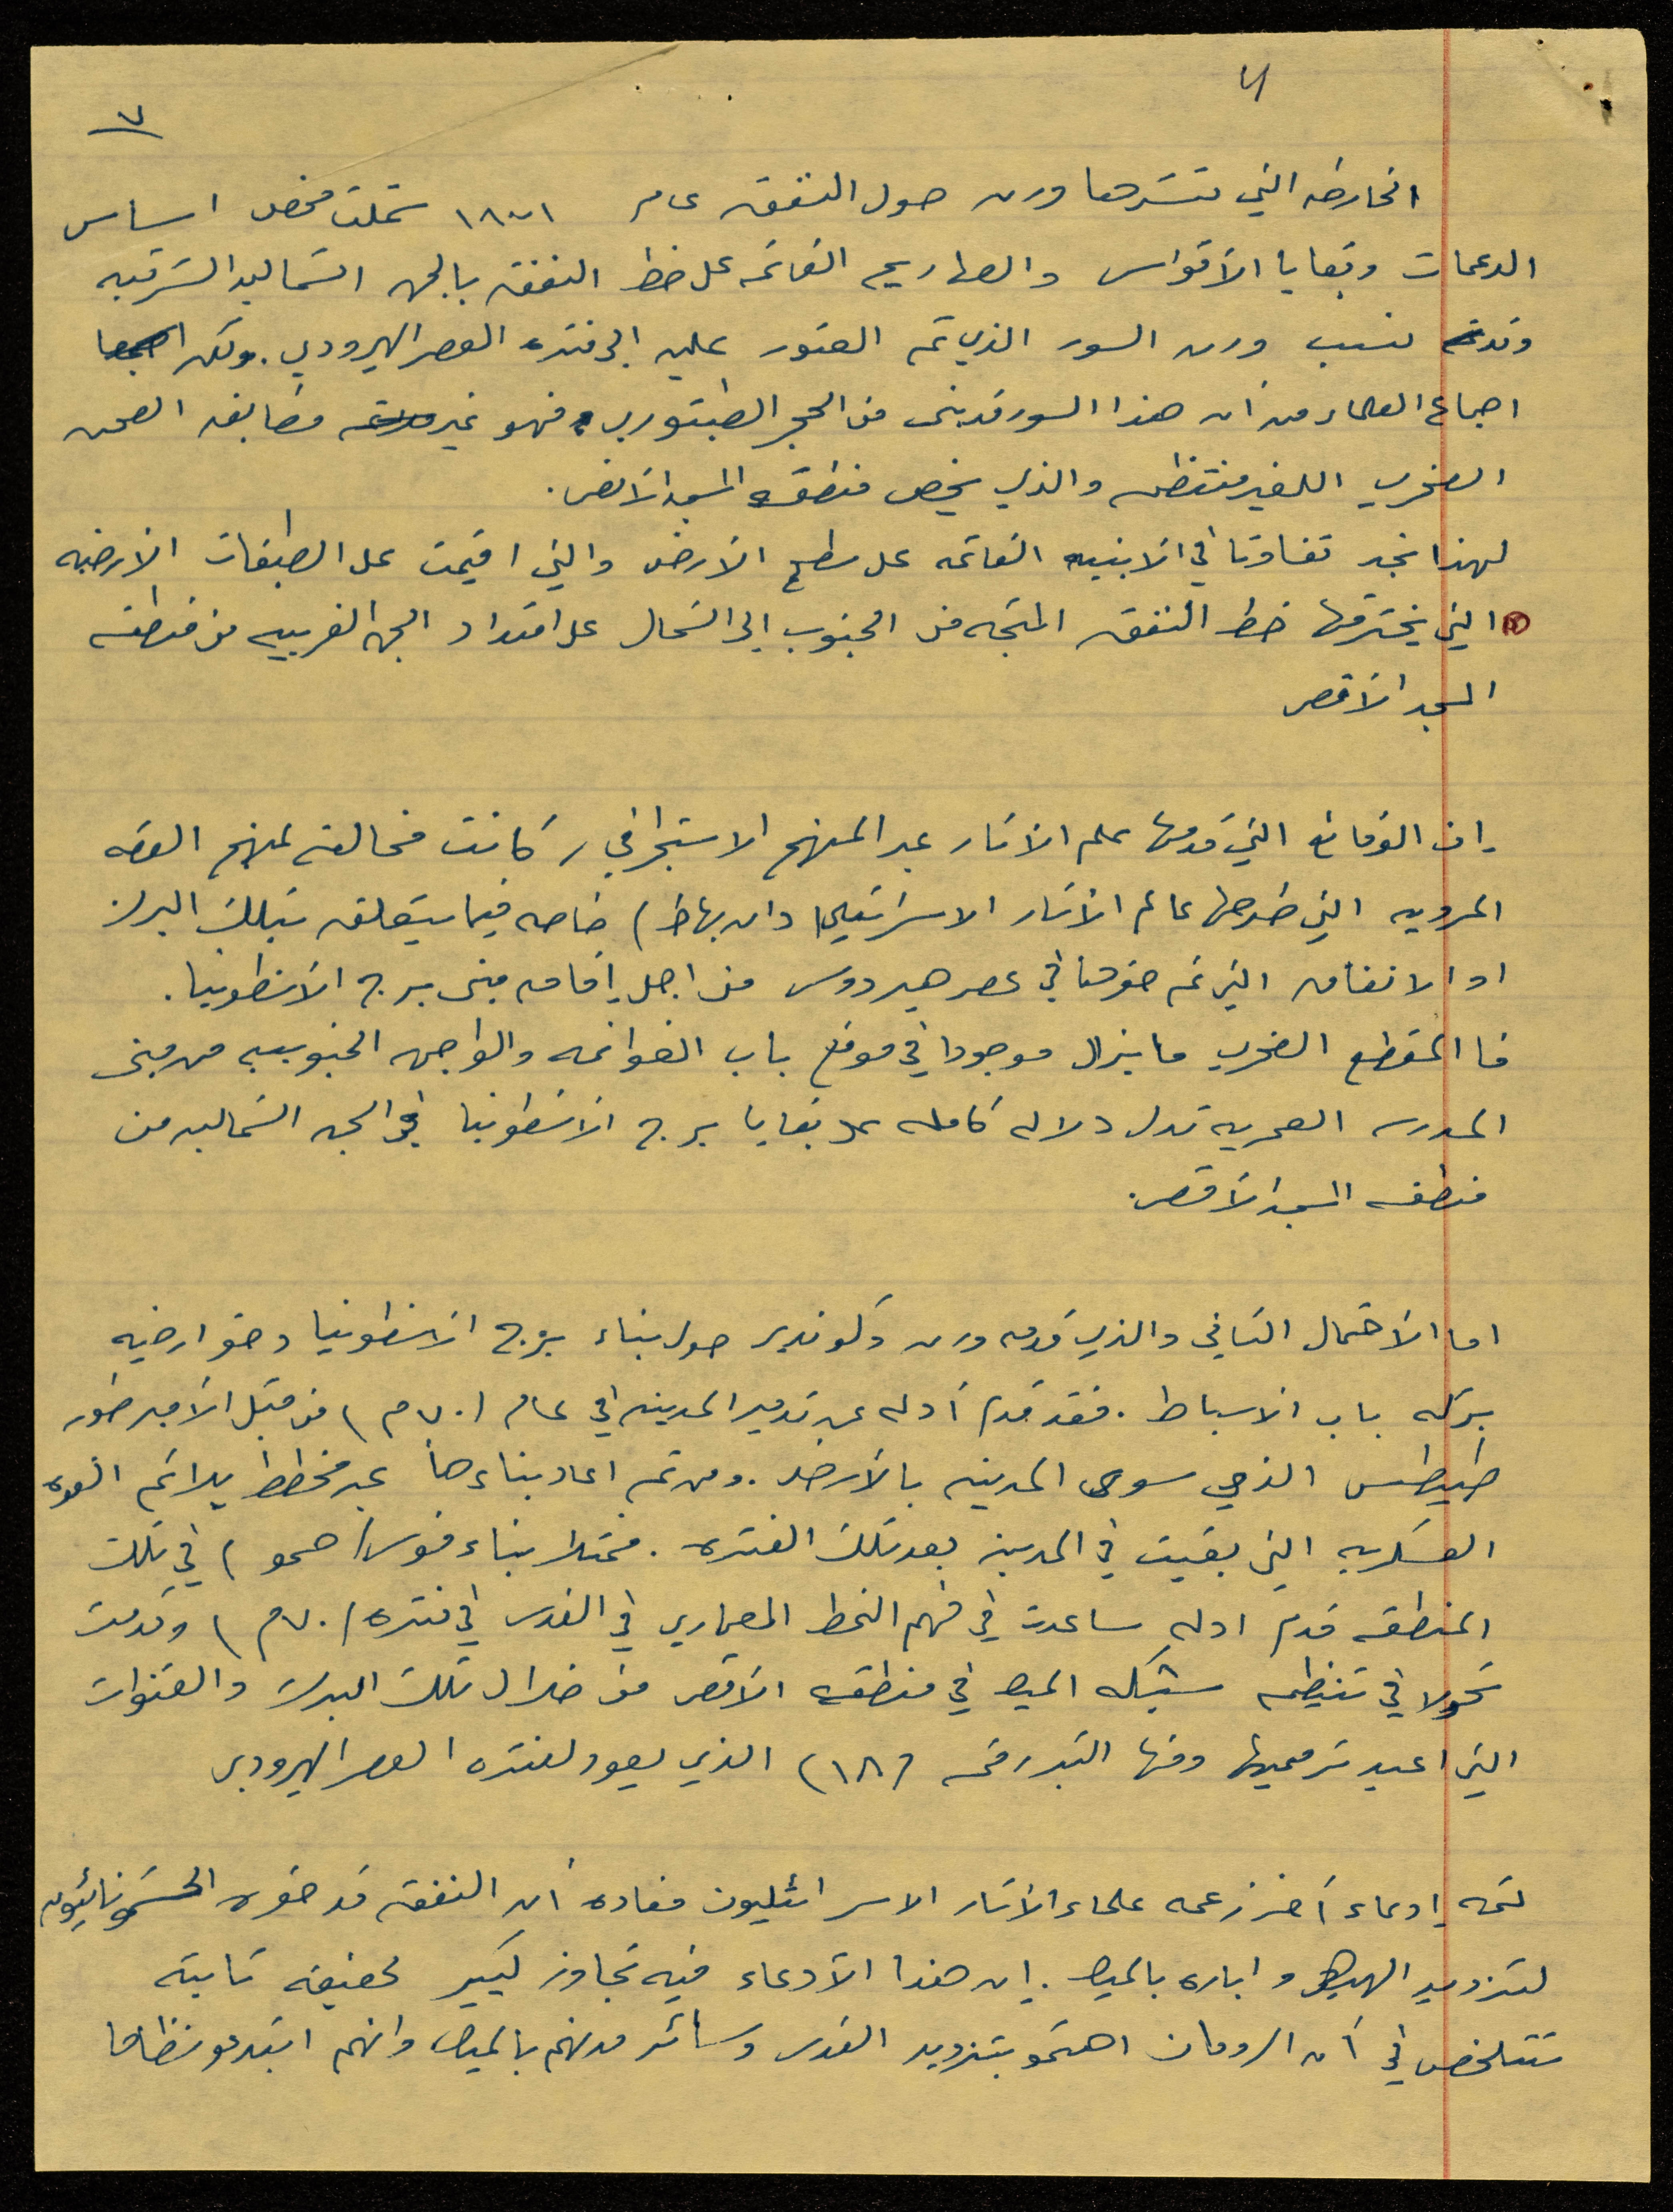 ٧
الخارطه التي نشرها ورن حول النفق عام ١٨٧١ شملت فحص اساس
الدعمات وبقايا الأقواس والصهاريج القائمه على خط النفق بالجهه الشماليه الشرقيه
وقد نسب ورن السور الذي تم العثور عليه الى فتره العصر الهيرودي. ولكن
اجماع العلماء من أن هذا السور قد بنى من الحجر الطبتوري فهو غير مضابقه الصحن
الصخري اللغير منتظم والذي يخص منطقه المسجد الأقصى.
لهذا نجد تفاوتا في الأبنيه القائمه على سطح الأرض والتي اقيمت على الطبقات الارضيه
التي يخترقها خط النفق المتجه من الجنوب إلى الشمال على امتداد الجهه الغربيه من منطقه
المسجد الأقصى
إن الوقائع التي قدمها علم الآثار عبر المنهج الاستجرافي كانت مخالفه لمنهج القصه
المرويه التي طرحها عالم الآثار الاسرائيلي (دان بهاط) خاصه فيما يتعلق بتلك البرك
او الانفاق التي تم حفرها في عصر هيردوس من اجل إقامه مبنى برج الأنطونيا.
فا المقطع الصخري ما يزال موجودا في موقع باب الغوانمه والواجهه الجنوبيه من مبنى
المدرسه العمريه تدل دلاله كامله على بقايا برج الأنطونيا في الجهه الشماليه من
منطقه المسجد الأقصى.
اما الأحتمال الثاني والذي قدمه ورن وكوندير حول بناء برج الأنطونيا وحفر ارضيه
بركه باب الأسباط. فقد قدم أدله عن تدمير المدينه في عام (٧٠م) من قبل الأمبرطور
طيطس الذي سوى المدينه بالأرض. ومن ثم اعاد بناءها عبر مخطط يلائم القوه
العسكريه التي بقيت في المدينه بعد تلك الفتره. فمثلا بناء قوس (حمو) في تلك
المنطقه قدم ادله ساعدت في فهم النمط المعماري في القدس في فتره (٧٠م) وقدمت
تحولا في تنظيم شبكه المياه في منطقه الأقصى من خلال تلك البرك والقنوات
التي اعيد ترميمها ومنها البئر رقم (١٨) الذي يعود لفتره العصر الهيرودي
ثمه إدعاء آخر زعمه علماء الآثار الاسرائيليون مفاده أن النفق قد حفره الحشمونائيون
لتزويد الهيكل و اباره بالمياه. إن هذا الأدعاء فيه تجاوز كبير لحقيقه ثابته
تتلخص في أن الرومان اهتمو بتزويد القدس وسائر مدنهم بالمياه وانهم ابتدعو نظاما